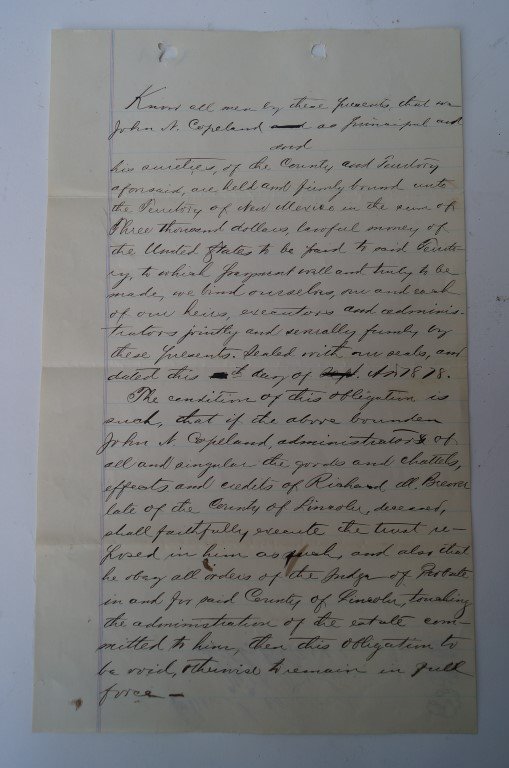 Know all men by these presents, that we
John N. Copeland as principal and
and
his sureties, of the County and Territory
aforesaid, are held and firmly bound unto
the Territory of New Mexico in the sum of
Three thousand dollars, lawful money of
the United States to be paid to said Territo-
ry, to which payment well and truly to be
made, we bind ourselves, our and each
of our heirs, executors and adminis-
trators jointly and severally firmly by
these presents. Sealed with our seals, and
dated this th day of A.D. 1878.
The condition of this obligation is
such, that if the above bounden
John N. Copeland, administrator of
all and singular the goods and chattels,
effects and credits of Richard M. Brewer
late of the County of Lincoln, deceased,
shall faithfully execute the trust re-
posed in him as such, and also that
he obey all orders of the Judge of Probate
in and for said County of Lincoln, touching
the administration of the estate com-
mitted to him, then this obligation to
be void, otherwise to remain in full
force —